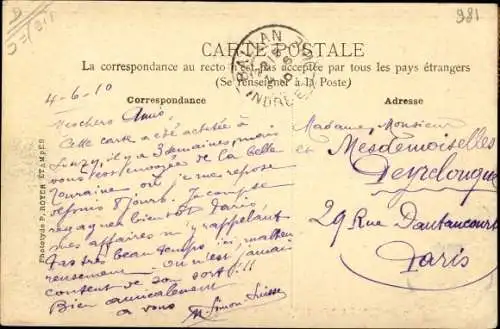 981
CARTE POSTALE
La correspondance au recto n'est pas acceptée par tous les pays étrangers
(Se renseigner à la Poste)
BALLAN
INDRE
Correspondance
Adresse
4-6-10
Mes chers Amis,
Cette carte a été achetée à
il y a 3 semaines, mais
vous est envoyée de la belle
Touraine où je me repose
depuis 8 jours. Je compte
regagner bientôt Paris
mes affaires m'y rappelant
Pas très beau temps ici, malheu
reusement on n'est jamais
content de son sort !!!
Bien amicalement
à vous
M. Simon
Madame, Monsieur
et Mesdemoiselles
29 Rue Dautancourt
Paris
Phototypie P. ROYER ETAMPES